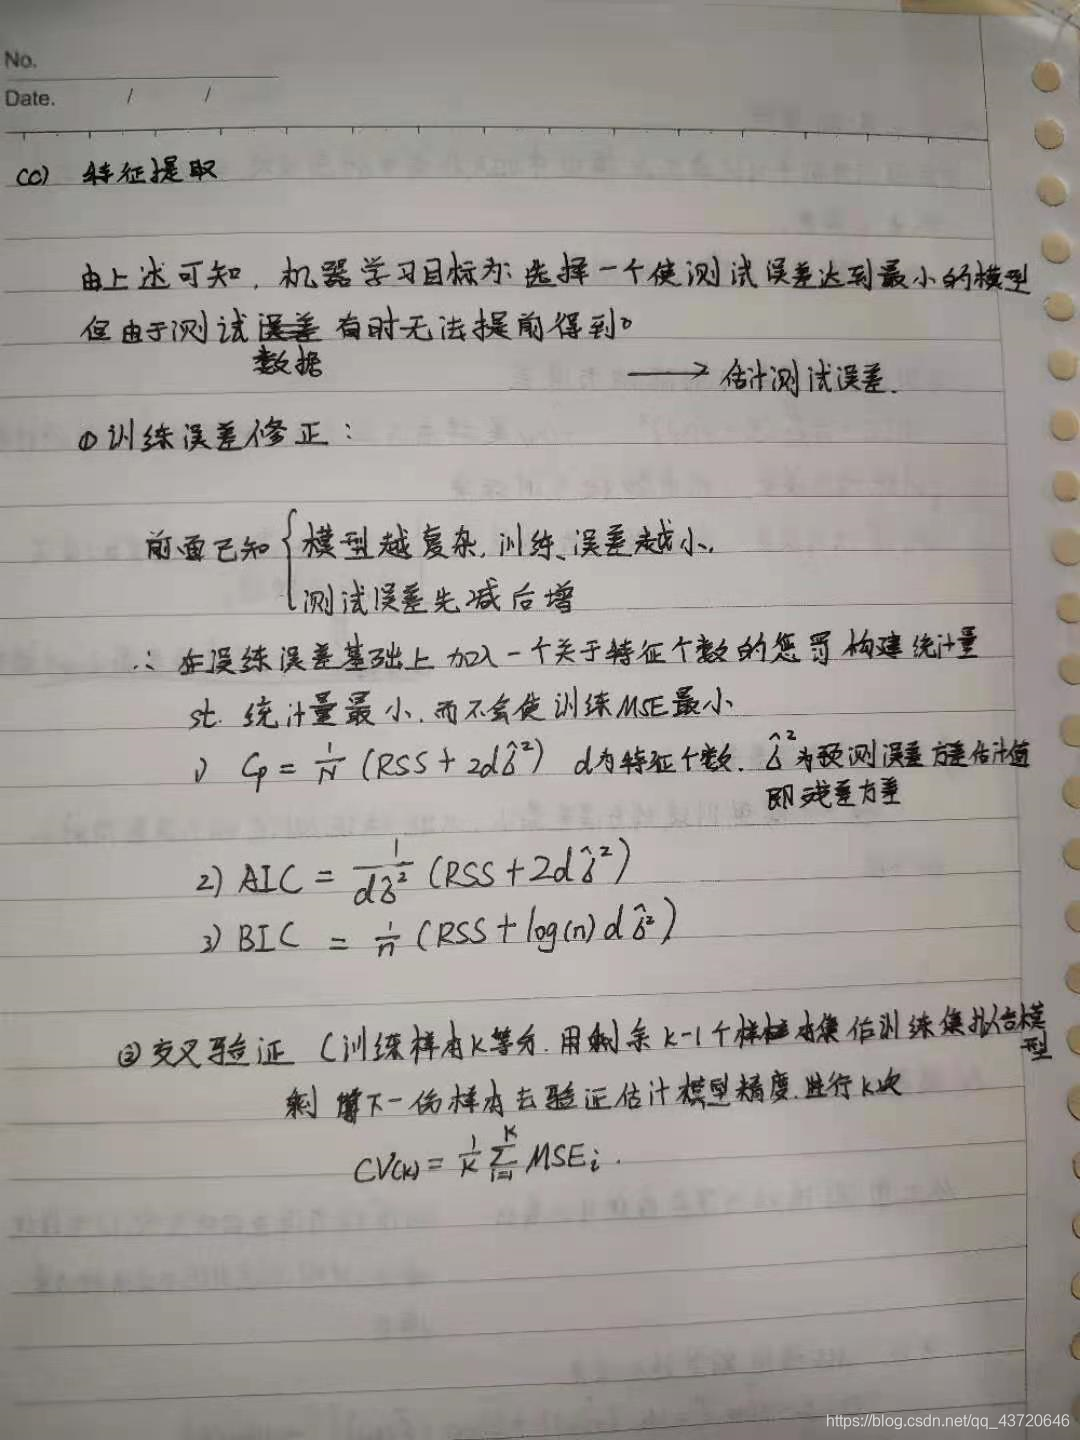 No.
Date. / /
(c) 特征提取
由上述可知，机器学习目标为：选择一个使测试误差达到最小的模型
但由于测试误差有时无法提前得到。
数据
→ 估计测试误差.
① 训练误差修正：
前面已知 { 模型越复杂，训练误差越小，
测试误差先减后增
∴ 在误练误差基础上 加入一个关于特征个数的惩罚 构建统计量
st. 统计量最小，而不会使训练MSE最小
1) Cp = 1/N (RSS + 2dσ̂²) d为特征个数. σ̂²为预测误差方差估计值
即残差方差
2) AIC = 1/(dσ̂²) (RSS + 2dσ̂²)
3) BIC = 1/n (RSS + log(n) dσ̂²)
② 交叉验证 (训练样本K等分. 用剩余K-1个样本集作训练集拟合模
型
剩下一份样本去验证估计模型精度.进行K次
CV(K) = 1/K Σ_{i=1}^{K} MSEi.
https://blog.csdn.net/qq_43720646